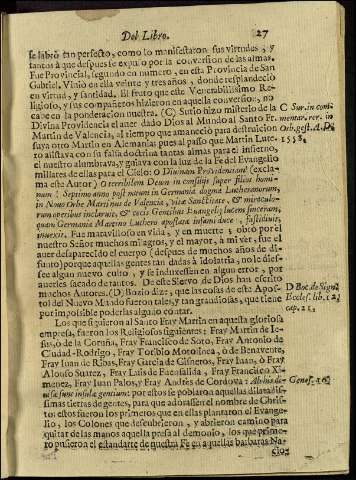 Del Libro. 27
se libró tan perfecto, como lo manifestaron sus virtudes, y
tantos à que despues se expuso por la conversion de las almas.
Fue Provincial, segundo en numero, en esta Provincia de San
Gabriel. Viuio en ella veinte y tres años, donde resplandeciò
en virtud, y santidad. El fruto que este Venerabilissimo Re-
ligioso, y sus compañeros hizieron en aquella conversion, no
cabe en la ponderacion nuestra. (C) Sutio hizo misterio de la
Divina Providencia el auer dado Dios al Mundo al Santo Fr.
Martin de Valencia, al tiempo que amaneciò para destruicion
suya otro Martin en Alemania: pues al passo que Martin Lute-
ro assistava con su falsa doctrina tantas almas para el infierno,
el nuestro alumbrava, y guiava con la luz de la Fè del Evangelio
millares de ellas para el Cielo: O Divinam Providentiam! (excla-
ma este Autor) O terribilem Deum in consilijs super filios homi-
num
in Novo Orbe Martinus de Valencia, vita Sanctitate, & miraculo-
rum operibus inclarus, & cæcis Gentibus Evangelij lucem
quam Germania Martino Luthero apostata insano duce, fastidiuit,
Fue maravilloso en vida, y en muerte; obrò por èl
nuestro Señor muchos milagros, y el mayor, à mi vèr, fue el
auer desaparecido el cuerpo (despues de muchos años de di-
funto) porque aquellas gentes tan dadas à Idolatria, no le dies-
sen algun nuevo culto, y se induxessen en algun error, por
auerles sacado de tantos. De este Siervo de Dios han escrito
muchos Autores. (D) Bozio dize, que las cosas de este Apos-
tol de Nuevo Mundo fueron tales, y tan grandiosas, que tiene
por impossible poderlas alguno contar.
Los que siguieron al Santo Fray Martin en aquesta gloriosa
empresa, fueron los Religiosos siguientes: Fray Martin de Ie-
sus, ò de la Coruña, Fray Francisco de Soto, Fray Antonio de
Ciudad-Rodrigo, Fray Tosbio Motolinea, ò de Benavente,
Fray Iuan de Ribas, Fray Garcia de Cisneros, Fray Iuan, ò Fray
Alonso Suarez, Fray Luis de Fuensalida, Fray Francisco Xi-
menez, Fray Iuan Palos, y Fray Andrès de Cordova:
sæ sunt insulæ gentium: por estos se poblaron aquellas dilatadis-
simas tierras de gentes, para que adorassen el nombre de Chris-
to: estos fueron los primeros que en ellas plantaron el Evange-
lio, los Colones que descubrieron, y abrieron camino para
quitar de las manos aquella presa al demonio, los que prime-
ro pusieron el estandarte de nuestra Fè en aquellas barbaras Na-
cio-
C Sur. in com-
mentar. rer. in
Orb. gest. A. D.
1558.
D Boc. de Sign.
Eccles. lib.
cap.
Genes.